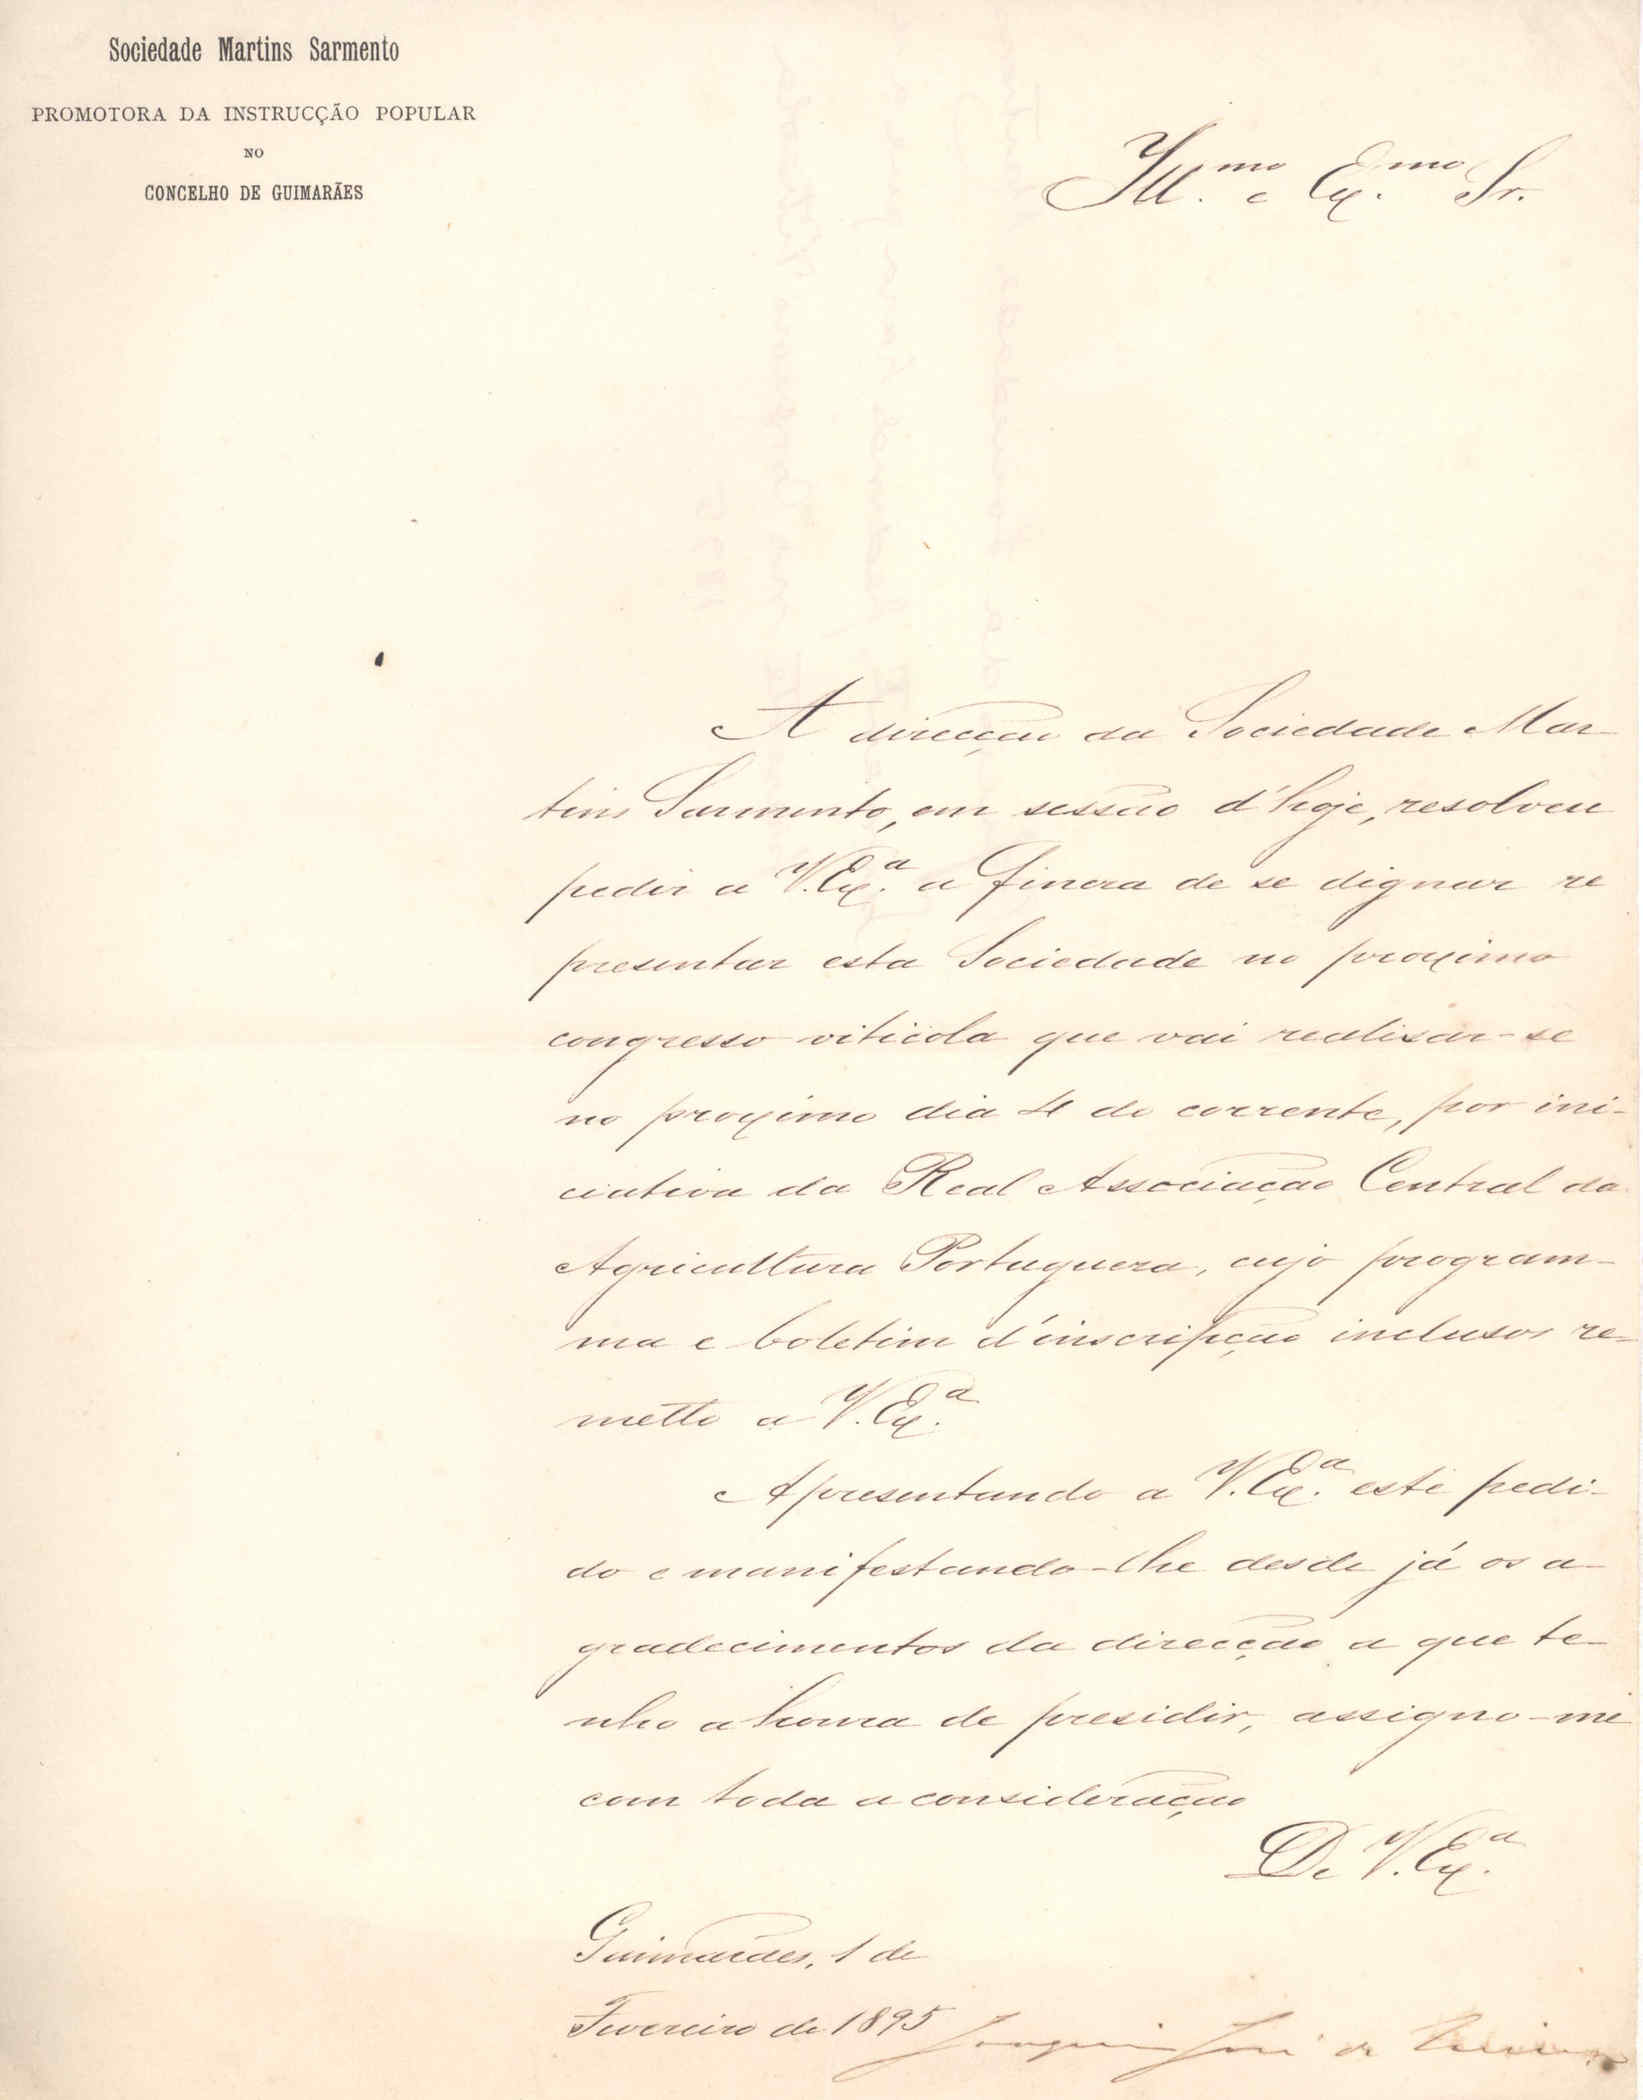 Sociedade Martins Sarmento
PROMOTORA DA INSTRUCÇÃO POPULAR
NO
CONCELHO DE GUIMARÃES
Ill.mo e Ex.mo Sr.
A direcção da Sociedade Mar-
tins Sarmento, em sessão d'hoje, resolveu
pedir a V. Ex.a a fineza de se dignar re
presentar esta Sociedade no proximo
congresso viticola que vai realisar-se
no proximo dia 4 do corrente, por ini-
ciativa da Real Associação Central da
Agricultura Portugueza, cujo program-
ma e boletim d'inscripção inclusos re-
metto a V. Ex.a
Apresentando a V. Ex.a este pedi-
do e manifestando-lhe desde já os a-
gradecimentos da direcção a que te-
nho a honra de presidir, assigno-me
com toda a consideração
De V. Ex.a
Guimarães, 1 de
Fevereiro de 1895
Joaquim José de